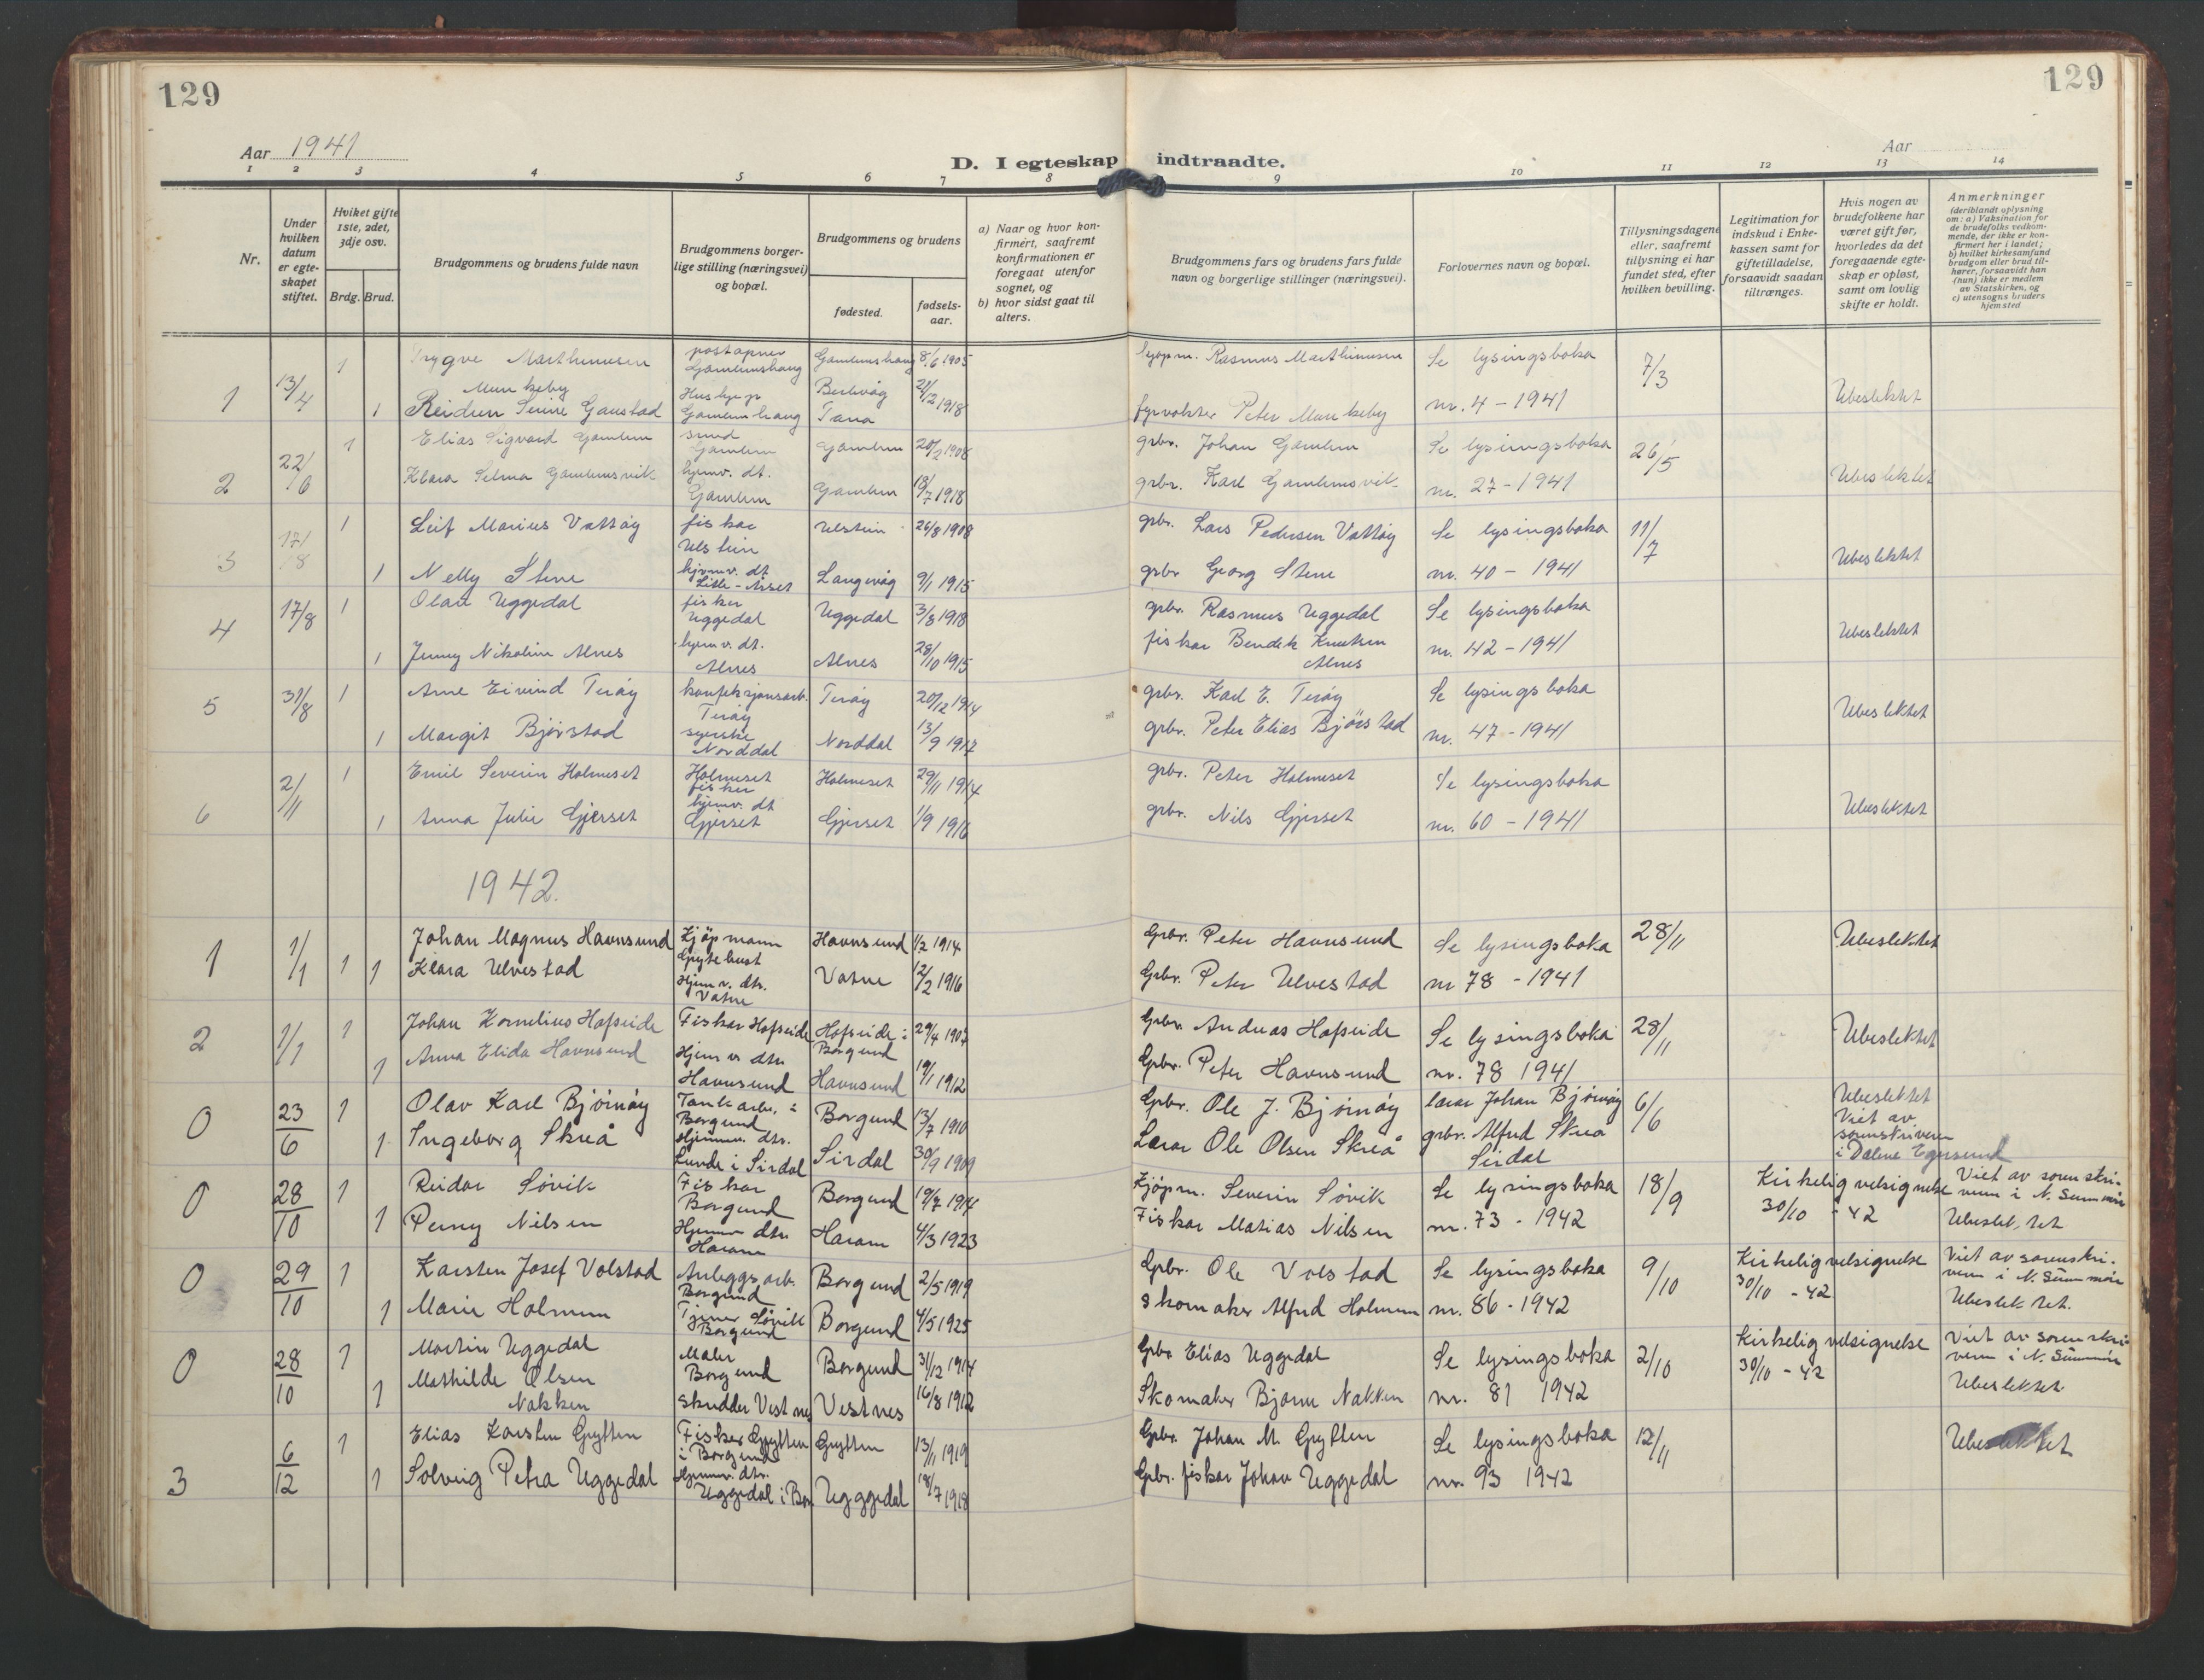 129
129
Aar 1941
D. I egteskap indtraadte.
Aar
1 2 3 4 5 6 7 8 9 10 11 12 13 14
Nr.
Under hvilken datum er egteskapet stiftet.
Hvilket gifte 1ste, 2det, 3dje osv.
Brdg. Brud.
Brudgommens og brudens fulde navn
Brudgommens borgerlige stilling (næringsvei) og bopæl.
Brudgommens og brudens
fødested.
fødselsaar.
a) Naar og hvor konfirmert, saafremt konfirmationen er foregaat utenfor sognet, og
b) hvor sidst gaat til alters.
Brudgommens fars og brudens fars fulde navn og borgerlige stillinger (næringsvei).
Forlovernes navn og bopæl.
Tillysningsdagene eller, saafremt tillysning ei har fundet sted, efter hvilken bevilling.
Legitimation for indskud i Enkekassen samt for giftetilladelse, forsaavidt saadan tiltrænges.
Hvis nogen av brudefolkene har været gift før, hvorledes da det foregaaende egteskap er opløst, samt om lovlig skifte er holdt.
Anmerkninger
(deriblandt oplysning om: a) Vaksination for de brudefolks vedkommende, der ikke er konfirmert her i landet; b) hvilket kirkesamfund brudgom eller brud tilhører, forsaavidt han (hun) ikke er medlem av Statskirken, og c) utensogns bruders hjemsted
1 13/4 1 Trygve Marthinussen postapner Gamlemshaug Gamlemshaug 8/6 1905 kjøpm. Rasmus Marthinussen Se lysingsboka 7/3
Munkeby
1 Reidun Serine Gaustad Gamlemshaug Berlevåg Tana 21/12 1918 fyrvokter Peter Munkeby nr. 4 - 1941 Ubeslektet
2 22/6 1 Elias Sigvard Gamlem smed Gamlem Gamlem 20/2 1908 grbr. Johan Gamlem Se lysingsboka 26/5
Klara Selma Gamlemsvik hjemv. dt. Gamlem Gamlem 18/7 1918 grbr. Karl Gamlemsvik nr. 27 - 1941 Ubeslektet
3 17/8 1 Leif Marius Vattøy fiskar Ulstein Ulstein 26/8 1908 grbr. Lars Pedersen Vattøy Se lysingsboka 11/7
1 Nelly Stene hjemv. dt Langevåg 9/1 1915 grbr Georg Stene nr. 40 - 1941 Ubeslektet
4 17/8 1 Olav Uggedal fisker Uggedal Uggedal 3/8 1918 grbr. Rasmus Uggedal Se lysingsboka
1 Jenny Nikoline Alnes hjem v. dt. Alnes Alnes 28/10 1915 fiskar Bendik Knutsen Alnes nr. 42 - 1941 Ubeslektet
5 31/8 1 Arne Eivind Terøy konfeksjonsarb. Terøy Terøy 20/12 1914 grbr. Karl E. Terøy Se lysingsboka
1 Margit Bjørstad syerske Norddal Norddal 13/9 1917 grbr. Peter Elias Bjørstad nr. 47 - 1941 Ubeslektet
6 2/11 1 Emil Severin Holmeset Holmeset fisker Holmeset 29/11 1914 grbr. Peter Holmeset Se lysingsboka
1 Anna Julie Gjerset hjemv. dt Gjerset Gjerset 1/9 1916 grbr. Nils Gjerset nr. 60 - 1941 Ubeslektet
1942.
1 1/1 1 Johan Magnus Havnsund Kjøpmann Havnsund 1/2 1914 Grbr. Peter Havnsund Se lysingsboka 28/11 Ubeslektet
1 Klara Ulvestad Hjem v. dtr. Vatne Vatne 12/2 1916 Grbr. Peter Ulvestad nr 78 - 1941
2 1/1 1 Johan Kornelius Hofseide Fiskar Hofseide Hofseide i Borgund 29/4 1907 Grbr. Andreas Hofseide Se lysingsboka 28/11 Ubeslektet
1 Anna Elida Havnsund Hjem v. dtr Havnsund Havnsund 19/1 1912 Grbr. Peter Havnsund nr. 78 1941
0 23/6 1 Olav Karl Bjørnøy Tankarb. i Borgund Borgund 13/7 1910 Grbr. Ole J. Bjørnøy lærar Johan Bjørnøy 6/6 Ubeslektet
1 Ingeborg Skreå Hjemmev. dtr. Lunde i Sirdal Sirdal 30/9 1909 Lærar Ole Olsen Skreå grbr. Alfred Skreå Sirdal Viet av sorenskriveren i Dalene Egersund
0 28/10 1 Reidar Søvik Fiskar Borgund Borgund 19/7 1914 Kjøpm. Severin Søvik Se lysingsboka 18/9 Kirkelig velsignelse 30/10 - 42 Viet av sorenskriveren i N. Sunnmøre
1 Perny Nilsen Hjemmev dtr Haram Haram 4/3 1923 Fiskar Matias Nilsen nr. 73 - 1942 Ubeslektet
0 29/10 1 Karsten Josef Volstad Anleggsarb. Borgund Borgund 2/5 1919 Grbr. Ole Volstad Se lysingsboka 9/10 Kirkelig velsignelse 30/10 - 42 Viet av sorenskriveren i N. Sunnmøre
1 Marie Holmem Tjener Søvik Borgund Borgund 4/5 1925 Skomaker Alfred Holmem nr. 86 - 1942 Ubeslektet.
0 28/10 1 Martin Uggedal Maler Borgund Borgund 31/12 1914 Grbr Elias Uggedal Se lysingsboka 2/10 Kirkelig velsignelse 30/10 - 42 Viet av sorenskriveren i N. Sunnmøre
1 Mathilde Olsen Nakken Skredder Vestnes Vestnes 16/8 1912 Skomaker Bjarne Nakken nr. 81 1942 Ubeslektet
3 6/12 1 Elias Karsten Grytten Fisker Grytten i Borgund Grytten 13/11 1919 Grbr. Johan M. Grytten Se lysingsboka 12/11 Ubeslektet
1 Solveig Petra Uggedal Hjemmev. dtr. Uggedal i Bor Uggedal 18/7 1918 Grbr. fiskar Johan Uggedal nr. 93 1942